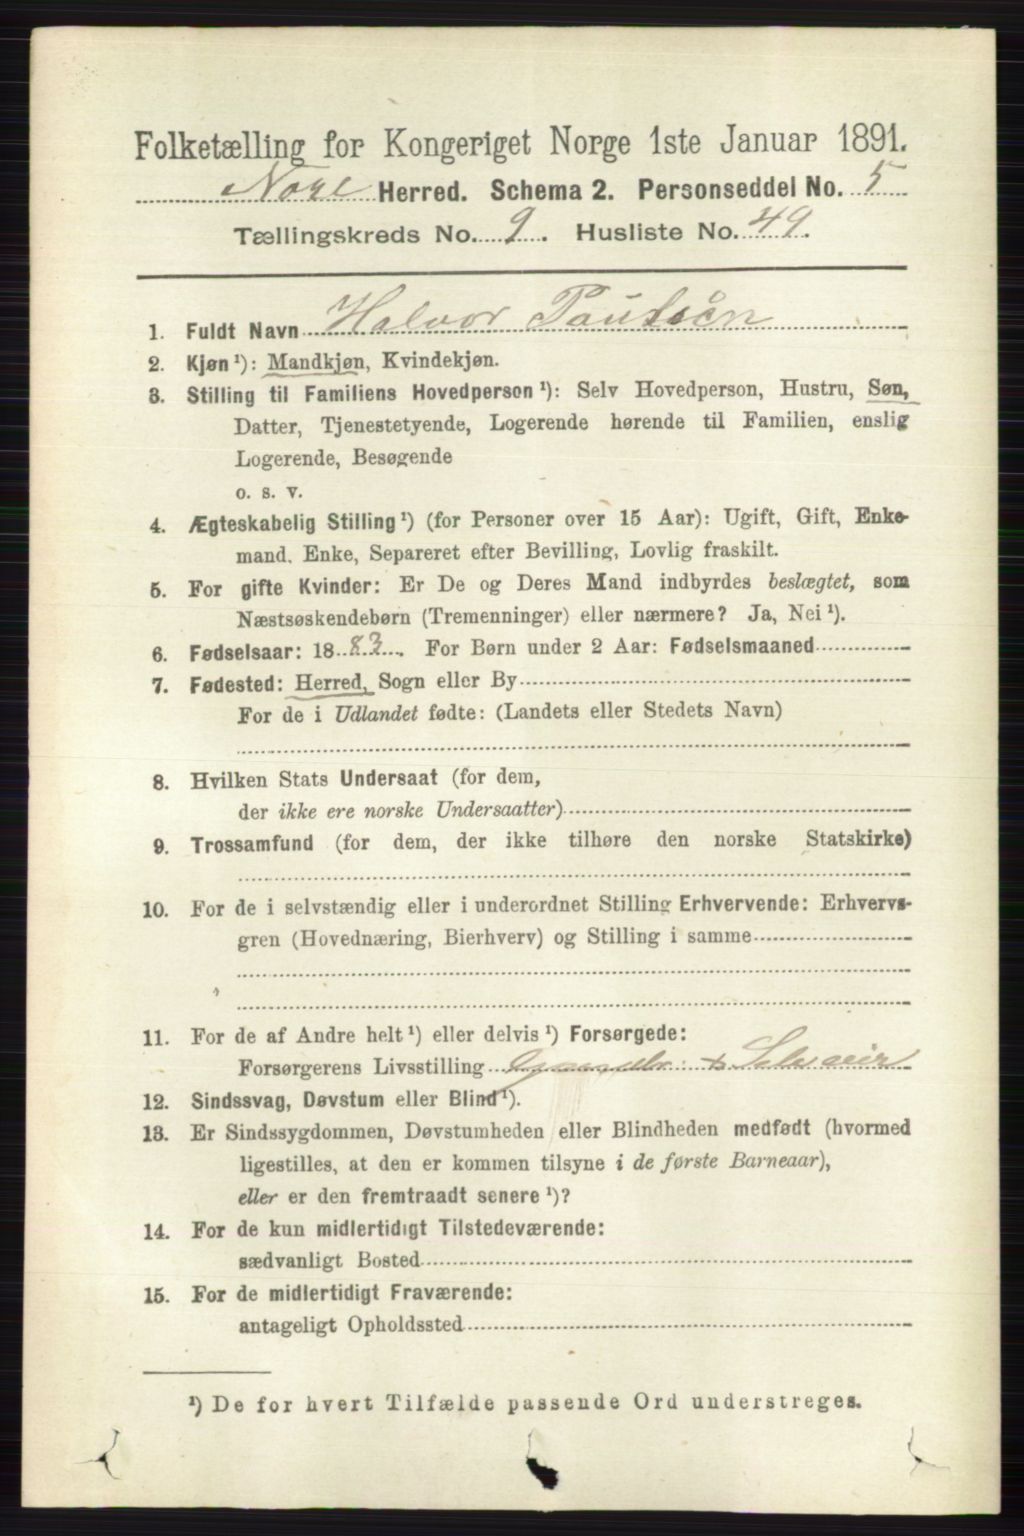 Folketælling for Kongeriget Norge 1ste Januar 1891.
Nore Herred. Schema 2. Personseddel No. 5
Tællingskreds No. 9. Husliste No. 49.
1. Fuldt Navn Halvor Paulsen
2. Kjøn ¹): Mandkjøn, Kvindekjøn.
3. Stilling til Familiens Hovedperson ¹): Selv Hovedperson, Hustru, Søn,
Datter, Tjenestetyende, Logerende hørende til Familien, enslig
Logerende, Besøgende
o. s. v.
4. Ægteskabelig Stilling ¹) (for Personer over 15 Aar): Ugift, Gift, Enke-
mand, Enke, Separeret efter Bevilling, Lovlig fraskilt.
5. For gifte Kvinder: Er De og Deres Mand indbyrdes beslægtet, som
Næstsøskendebørn (Tremenninger) eller nærmere? Ja, Nei ¹).
6. Fødselsaar: 1883. For Børn under 2 Aar: Fødselsmaaned
7. Fødested: Herred, Sogn eller By
For de i Udlandet fødte: (Landets eller Stedets Navn)
8. Hvilken Stats Undersaat (for dem,
der ikke ere norske Undersaatter)
9. Trossamfund (for dem, der ikke tilhøre den norske Statskirke)
10. For de i selvstændig eller i underordnet Stilling Erhvervende: Erhvervs-
gren (Hovednæring, Bierhverv) og Stilling i samme
11. For de af Andre helt ¹) eller delvis ¹) Forsørgede:
Forsørgerens Livsstilling Gaardbr: & Selveier
12. Sindssvag, Døvstum eller Blind ¹).
13. Er Sindssygdommen, Døvstumheden eller Blindheden medfødt (hvormed
ligestilles, at den er kommen tilsyne i de første Barneaar),
eller er den fremtraadt senere ¹)?
14. For de kun midlertidigt Tilstedeværende:
sædvanligt Bosted
15. For de midlertidigt Fraværende:
antageligt Opholdssted
¹) De for hvert Tilfælde passende Ord understreges.